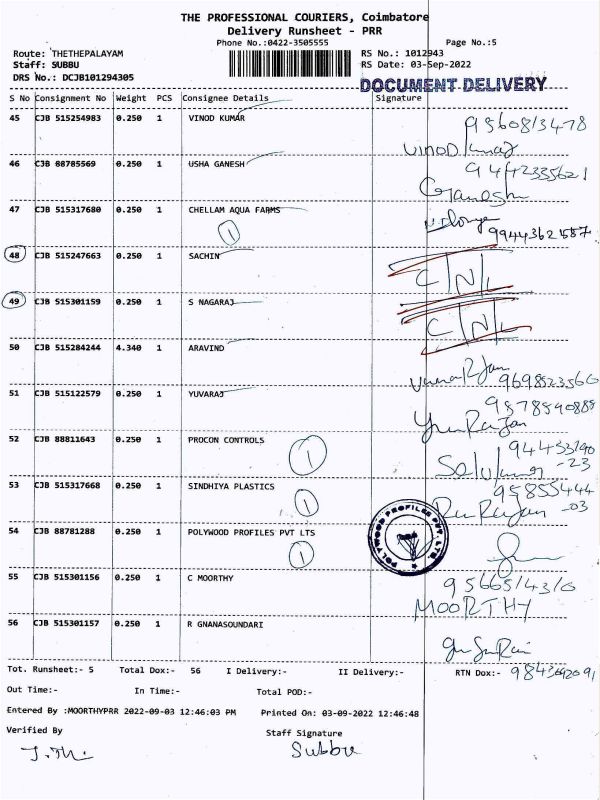 THE PROFESSIONAL COURIERS, Coimbatore
Delivery Runsheet - PRR
Phone No.:0422-3505555 Page No.:5
Route: THETHEPALAYAM RS No.: 1012943
Staff: SUBBU RS Date: 03-Sep-2022
DRS No.: DCJB101294305 DOCUMENT DELIVERY
S No Consignment No Weight PCS Consignee Details Signature
45 CJB 515254983 0.250 1 VINOD KUMAR 9360813478
VINOD Kumar
46 CJB 88785569 0.250 1 USHA GANESH 9442335621
Ganesh
47 CJB 515317680 0.250 1 CHELLAM AQUA FARMS
1 9944362587
48 CJB 515247663 0.250 1 SACHIN C/N/L
49 CJB 515301159 0.250 1 S NAGARAJ C/N/L
50 CJB 515284244 4.340 1 ARAVIND
9698523560
51 CJB 515122579 0.250 1 YUVARAJ 9578590888
52 CJB 88811643 0.250 1 PROCON CONTROLS
1 -23
53 CJB 515317668 0.250 1 SINDHIYA PLASTICS 95855444
1 -03
54 CJB 88781288 0.250 1 POLYWOOD PROFILES PVT LTS
POLYWOOD PROFILES PVT. LTD.
1
55 CJB 515301156 0.250 1 C MOORTHY 9566514310
MOORTHY
56 CJB 515301157 0.250 1 R GNANASOUNDARI
Tot. Runsheet:- 5 Total Dox:- 56 I Delivery:- II Delivery:- RTN Dox:- 9843692091
Out Time:- In Time:- Total POD:-
Entered By :MOORTHYPRR 2022-09-03 12:46:03 PM Printed On: 03-09-2022 12:46:48
Verified By Staff Signature
Subbu